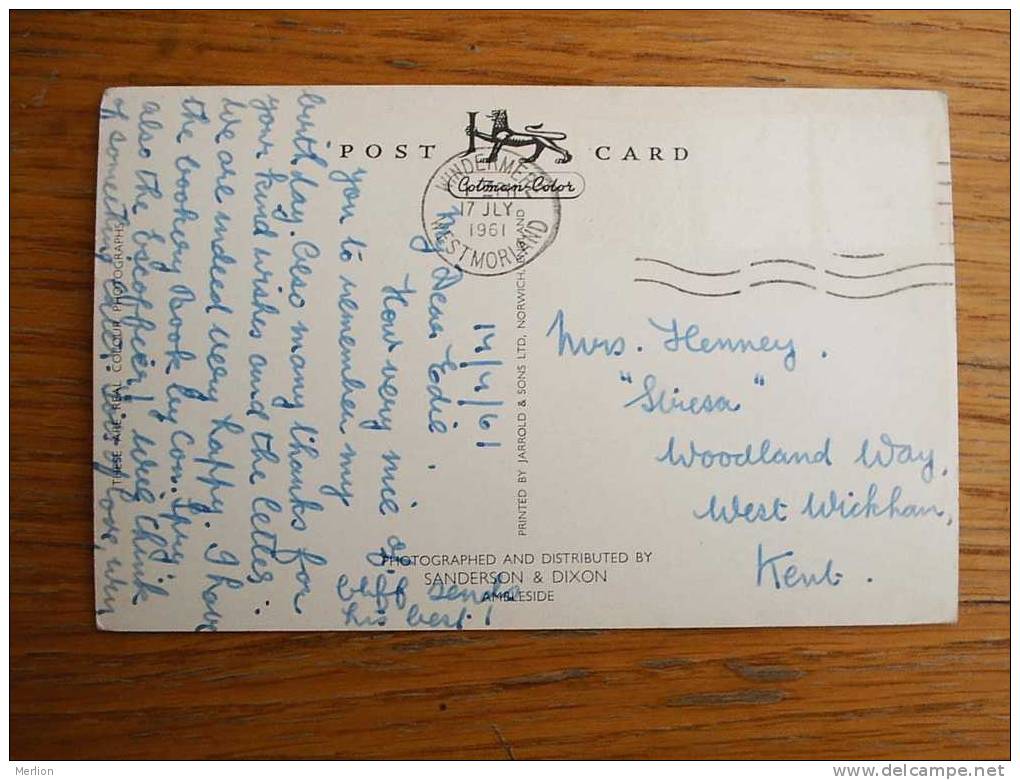 POST CARD
Cotman-Color
WINDERMERE
17 JLY
1961
WESTMORLAND
17/7/61
My Dear Edie,
How very nice of
you to remember my
birthday. Also many thanks for
your kind wishes and the letter.
We are indeed very happy. I have
the cookery Book by Con. Spry:
also the Escoffier! Will think
of something else. Lots of love,
sends
his best!
THESE ARE REAL COLOUR PHOTOGRAPHS
PRINTED BY JARROLD & SONS LTD, NORWICH, ENGLAND
PHOTOGRAPHED AND DISTRIBUTED BY
SANDERSON & DIXON
AMBLESIDE
Mrs. Henney.
"Stresa"
Woodland Way,
West Wickham,
Kent.
Merlion
http://www.delcampe.net